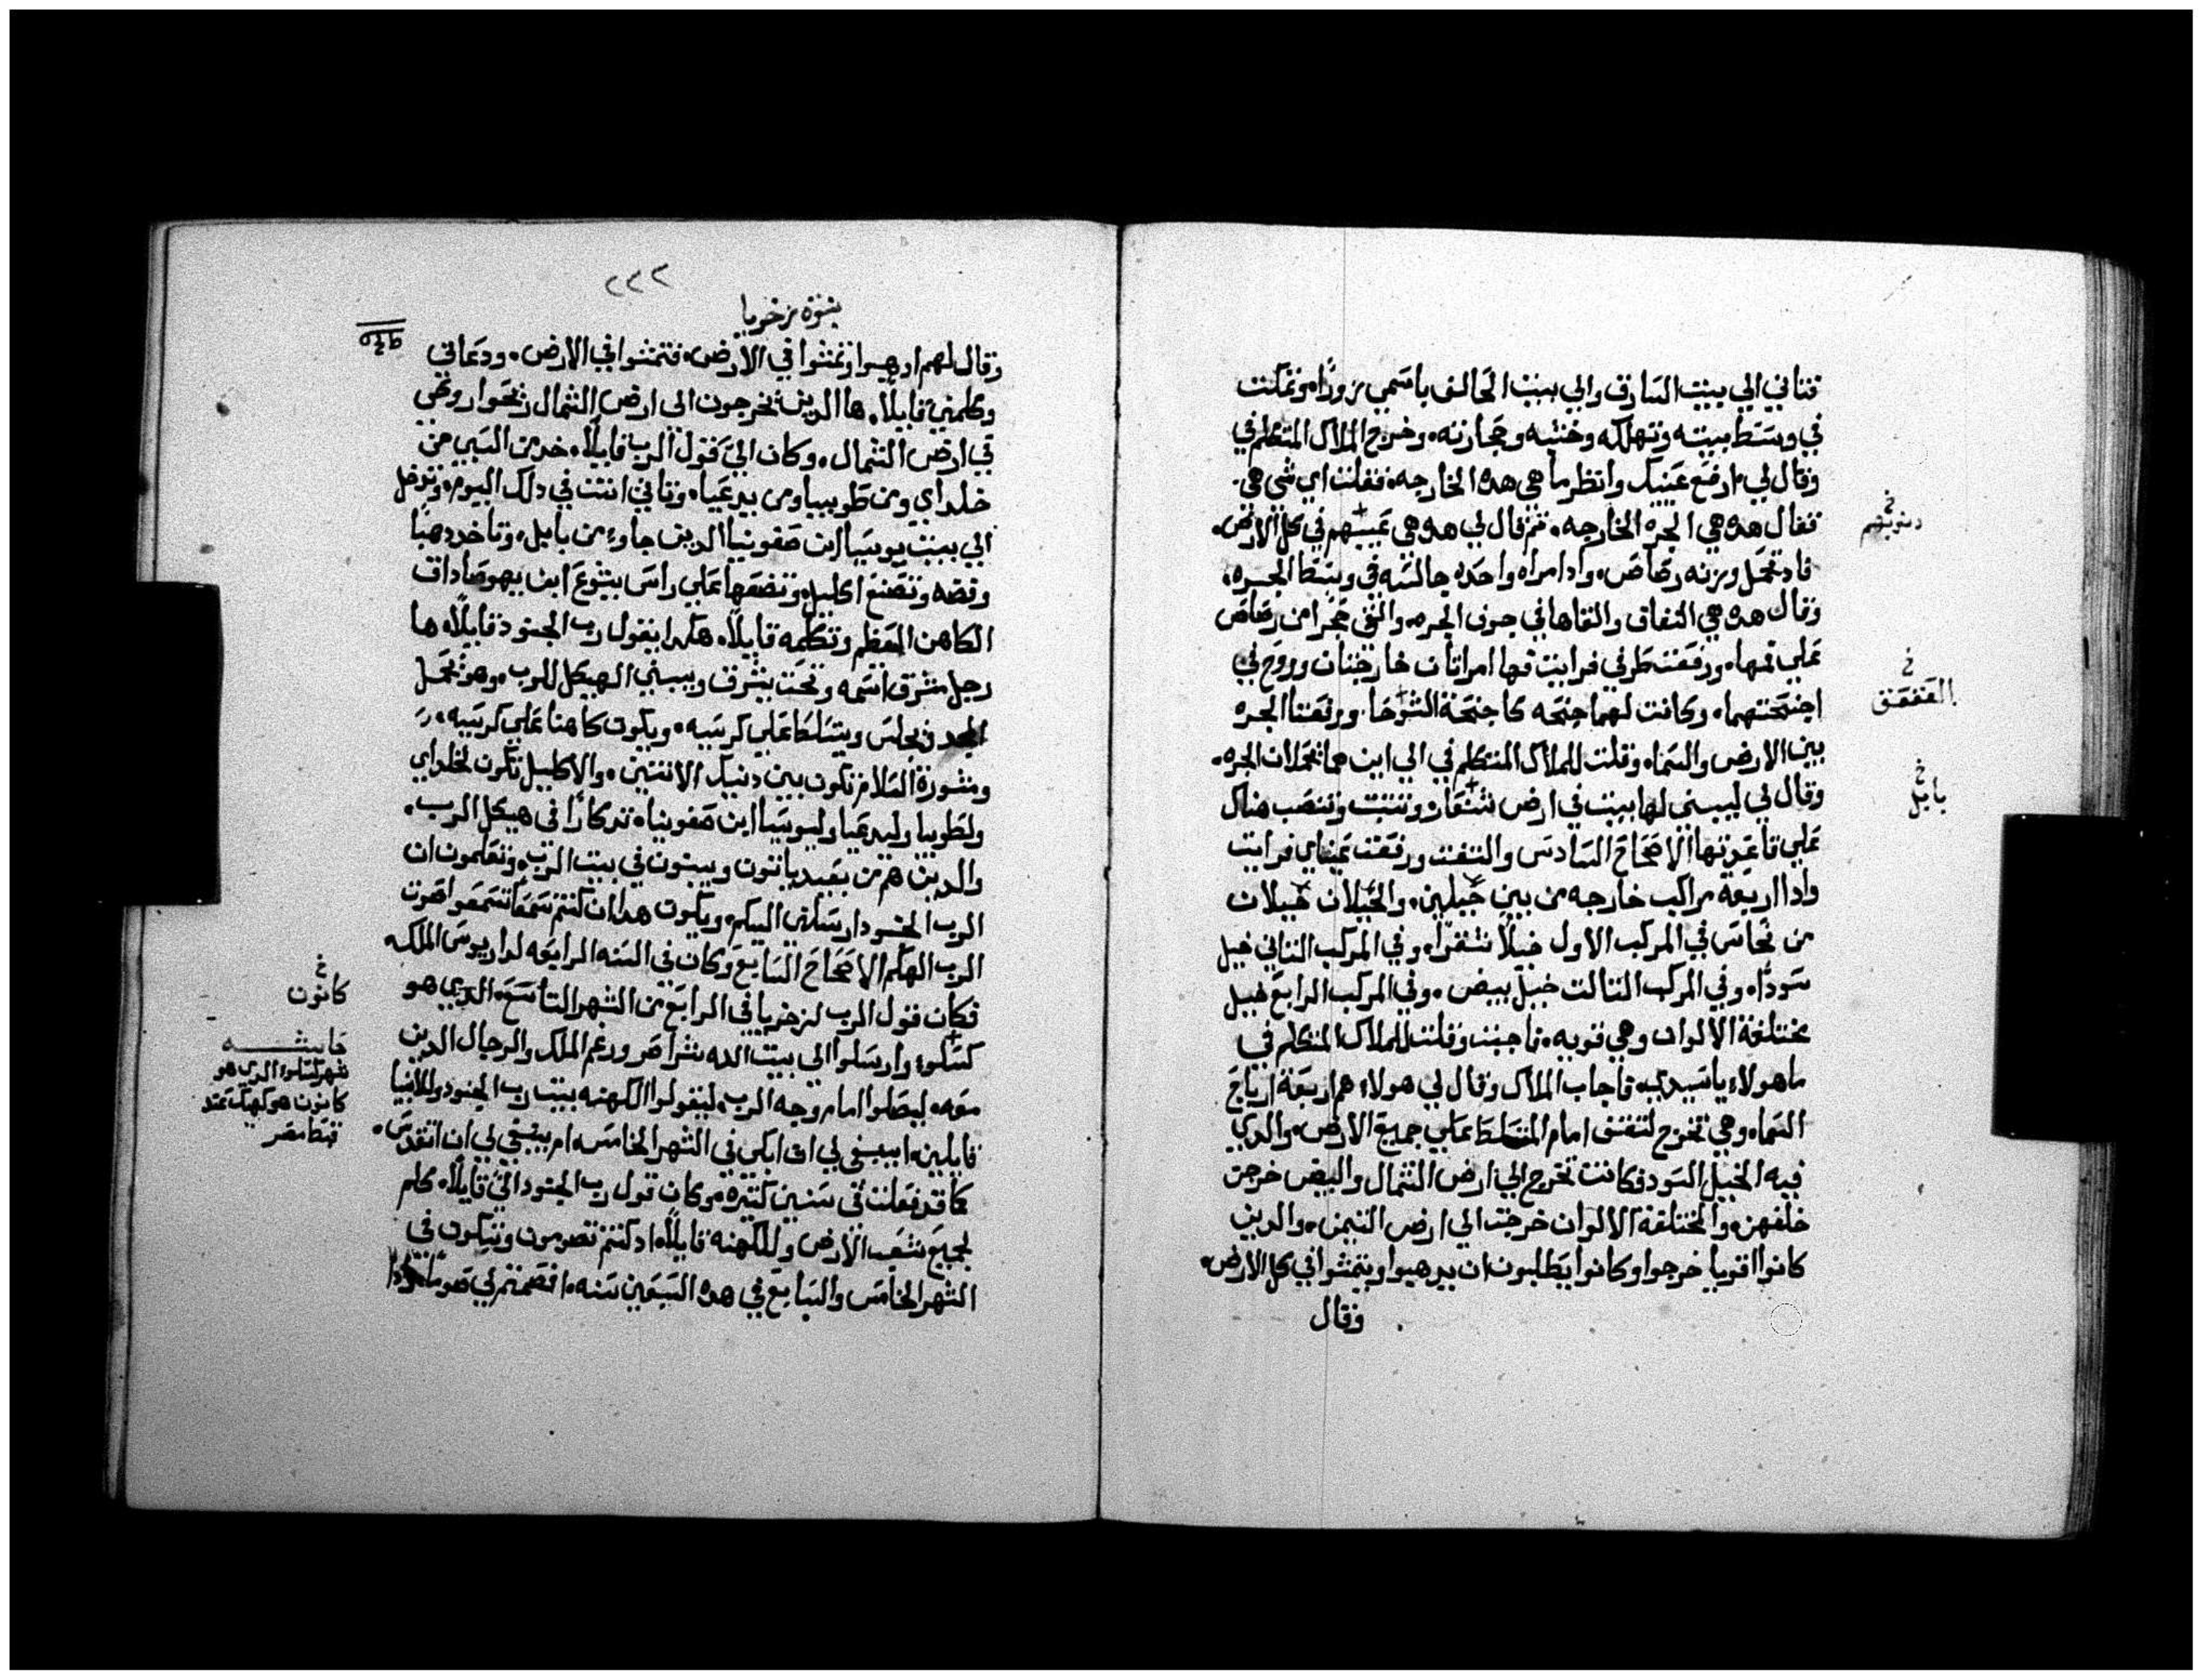 فتاتي الي بيت السارق والي بيت الحالف باسمي زورًا. وتمكت
في وسط بيته وتهلكه وخشبه وحجارته. وخرج الملاك المتكلم في
وقال لي ارفع عينيك وانظر ما هي هده الخارجه. فقلت اي شي هي.
فقال هده هي الجره الخارجه. تم قال لي هده هي عينهم في كل الارض.
دنوبهم
فادا تحمل وزنه رصاص. وادا امراه واحده جالسه في وسط الجره.
وقال هده هي النفاق والقاها في جوف الجره. والقي حجرا من رصاص
علي تمها. ورفعت طرفي فرايت فها امراتان خارجتان وروح في
اجنحتهما. وكانت لهما اجنحه كاجنحة الشوحا. ورفعتا الجره
العقعق
بين الارض والسما. وقلت للملاك المتكلم في الي اين هما تحملان الجره.
وقال لي ليبني لها بيت في ارض شنعار. وتتبت وتنصب هناك
بابل
علي قاعدتها الاصحاح السادس والتفت ورفعت عيناي فرايت
وادا اربعة مراكب خارجه من بين جبلين. والجبلان جبلان
من نحاس في المركب الاول خيلًا شقرًا. وفي المركب التاني خيل
سودًا. وفي المركب التالت خيل بيض. وفي المركب الرابع خيل
مختلفة الالوان وهي قويه. فاجبت وقلت للملاك المتكلم في
ما هولاء يا سيدي. فاجاب الملاك وقال لي هولاء هم اربعة ارياح
السما. وهي تخرج لتقف امام المتسلط علي جميع الارض. والدي
فيه الخيل السود فكانت تخرج الي ارض الشمال والبيض خرجت
خلفهن. والمختلفة الالوان خرجت الي ارض التيمن. والدين
كانوا اقويا خرجوا وكانوا يطلبون ان يدهبوا ويتمشوا في كل الارض.
وقال
٢٤٢
نبوة زخريا
وقال لهم ادهبوا وتمشوا في الارض. فتمشوا في الارض. ودعاني
وكلمني قايلًا. ها الدين يخرجون الي ارض الشمال ريحوا روحي
في ارض الشمال. وكان اليَّ قول الرب قايلًا. خد من السبي من
خلداي ومن طوبيا ومن يدعيا. وتاتي انت في دلك اليوم. وتدخل
الي بيت يوسيا ابن صفونيا الدين جاوء من بابل. وتاخد دهبًا
وفضه وتصنع اكليل. وتضعها علي راس يشوع ابن يهوصاداق
الكاهن المعظم وتكلمه قايلًا. هكدا يقول رب الجنود قايلًا. ها
رجل مشرق اسمه وتحت يشرق ويبني الهيكل للرب. وهو يحمل
المجد ويجلس ويتسلط علي كرسيه. ويكون كاهنا علي كرسيه.
ومشورة السلام تكون بين دنيك الاتنين. والاكليل تكون لخلداي
ولطوبيا وليدعيا وليوسيا ابن صفونيا. تدكارًا في هيكل الرب.
والدين هم من بعيد ياتون ويبنون في بيت الرب. وتعلمون ان
الرب الجنود ارسلني اليكم. ويكون هدا ان كنتم سمعًا تسمعوا صوت
الرب الهكم الاصحاح السابع وكان في السنه الرابعه لداريوس الملك
فكان قول الرب لزخريا في الرابع من الشهر التاسع. الدي هو
كانون
كسلوء وارسلوا الي بيت الله شراصر ورغم الملك والرجال الدين
حاشيه
شهر كسلوء الدي هو
معه. ليصلوا امام وجه الرب. ليقولوا للكهنه بيت رب الجنود وللانبيا
كانون هو كيهك عند
قايلين. اينبغي لي ان ابكي في الشهر الخامس. ام ينبغي لي ان اتقدس.
قبط مصر
كما قد فعلت في سنين كتيره. وكان قول رب الجنود اليَّ قايلًا. كلم
لجميع شعب الارض وللكهنه قايلًا. ادكنتم تصومون وتبكون في
الشهر الخامس والسابع في هده السبعين سنه. افصمتم لي صومًا